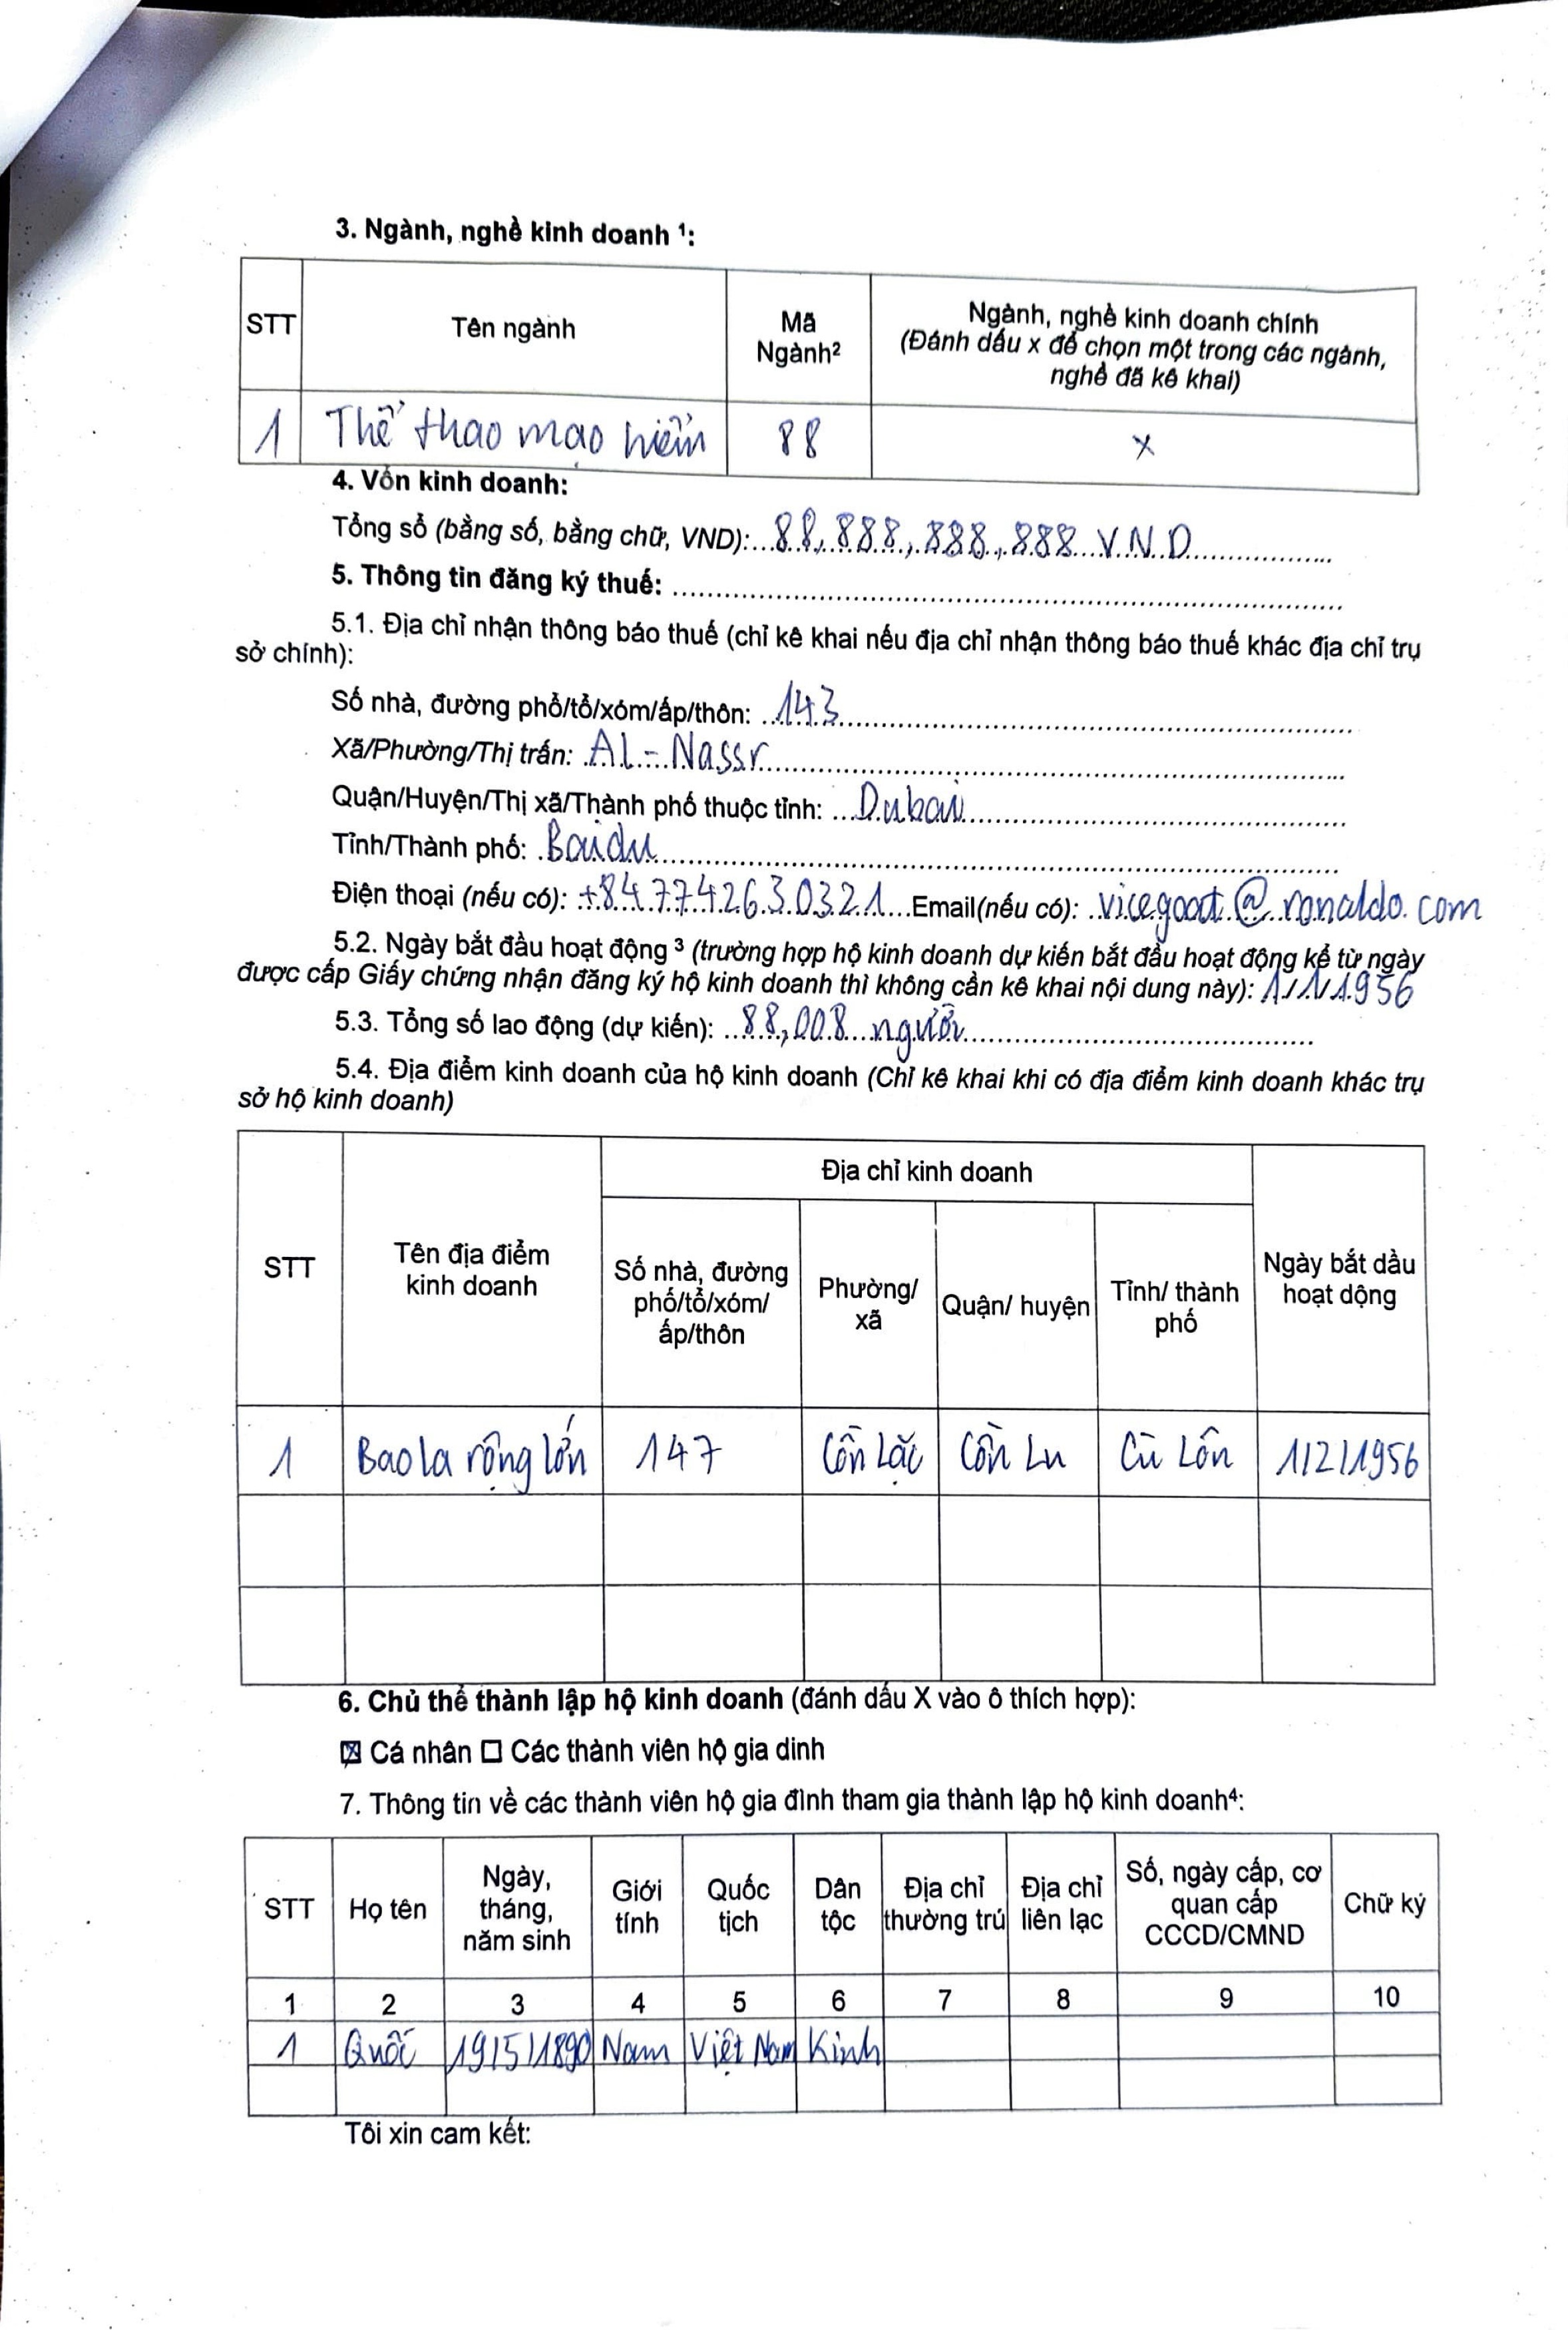 3. Ngành, nghề kinh doanh ¹:
STT Tên ngành Mã Ngành² Ngành, nghề kinh doanh chính
(Đánh dấu x để chọn một trong các ngành,
nghề đã kê khai)
1 Thể thao mạo hiểm 88 x
4. Vốn kinh doanh:
Tổng số (bằng số, bằng chữ, VND):...88,888,888,888 V.N.D...
5. Thông tin đăng ký thuế: ...
5.1. Địa chỉ nhận thông báo thuế (chỉ kê khai nếu địa chỉ nhận thông báo thuế khác địa chỉ trụ
sở chính):
Số nhà, đường phố/tổ/xóm/ấp/thôn: ...143...
Xã/Phường/Thị trấn: Al-Nassr...
Quận/Huyện/Thị xã/Thành phố thuộc tỉnh: ...Dubai...
Tỉnh/Thành phố: Baidu...
Điện thoại (nếu có): +847742630321...Email(nếu có): vicegoat@ronaldo.com
5.2. Ngày bắt đầu hoạt động ³ (trường hợp hộ kinh doanh dự kiến bắt đầu hoạt động kể từ ngày
được cấp Giấy chứng nhận đăng ký hộ kinh doanh thì không cần kê khai nội dung này): 1/1/1956
5.3. Tổng số lao động (dự kiến): ...88,008 người...
5.4. Địa điểm kinh doanh của hộ kinh doanh (Chỉ kê khai khi có địa điểm kinh doanh khác trụ
sở hộ kinh doanh)
STT Tên địa điểm kinh doanh Địa chỉ kinh doanh Ngày bắt dầu hoạt động
Số nhà, đường phố/tổ/xóm/ấp/thôn Phường/xã Quận/ huyện Tỉnh/ thành phố
1 Bao la rộng lớn 147 Cồn Lặc Cồn Lu Cù Lôn 1/2/1956
6. Chủ thể thành lập hộ kinh doanh (đánh dấu X vào ô thích hợp):
☒ Cá nhân ☐ Các thành viên hộ gia dinh
7. Thông tin về các thành viên hộ gia đình tham gia thành lập hộ kinh doanh⁴:
STT Họ tên Ngày, tháng, năm sinh Giới tính Quốc tịch Dân tộc Địa chỉ thường trú Địa chỉ liên lạc Số, ngày cấp, cơ quan cấp CCCD/CMND Chữ ký
1 2 3 4 5 6 7 8 9 10
1 Quốc 19/5/1890 Nam Việt Nam Kinh
Tôi xin cam kết: